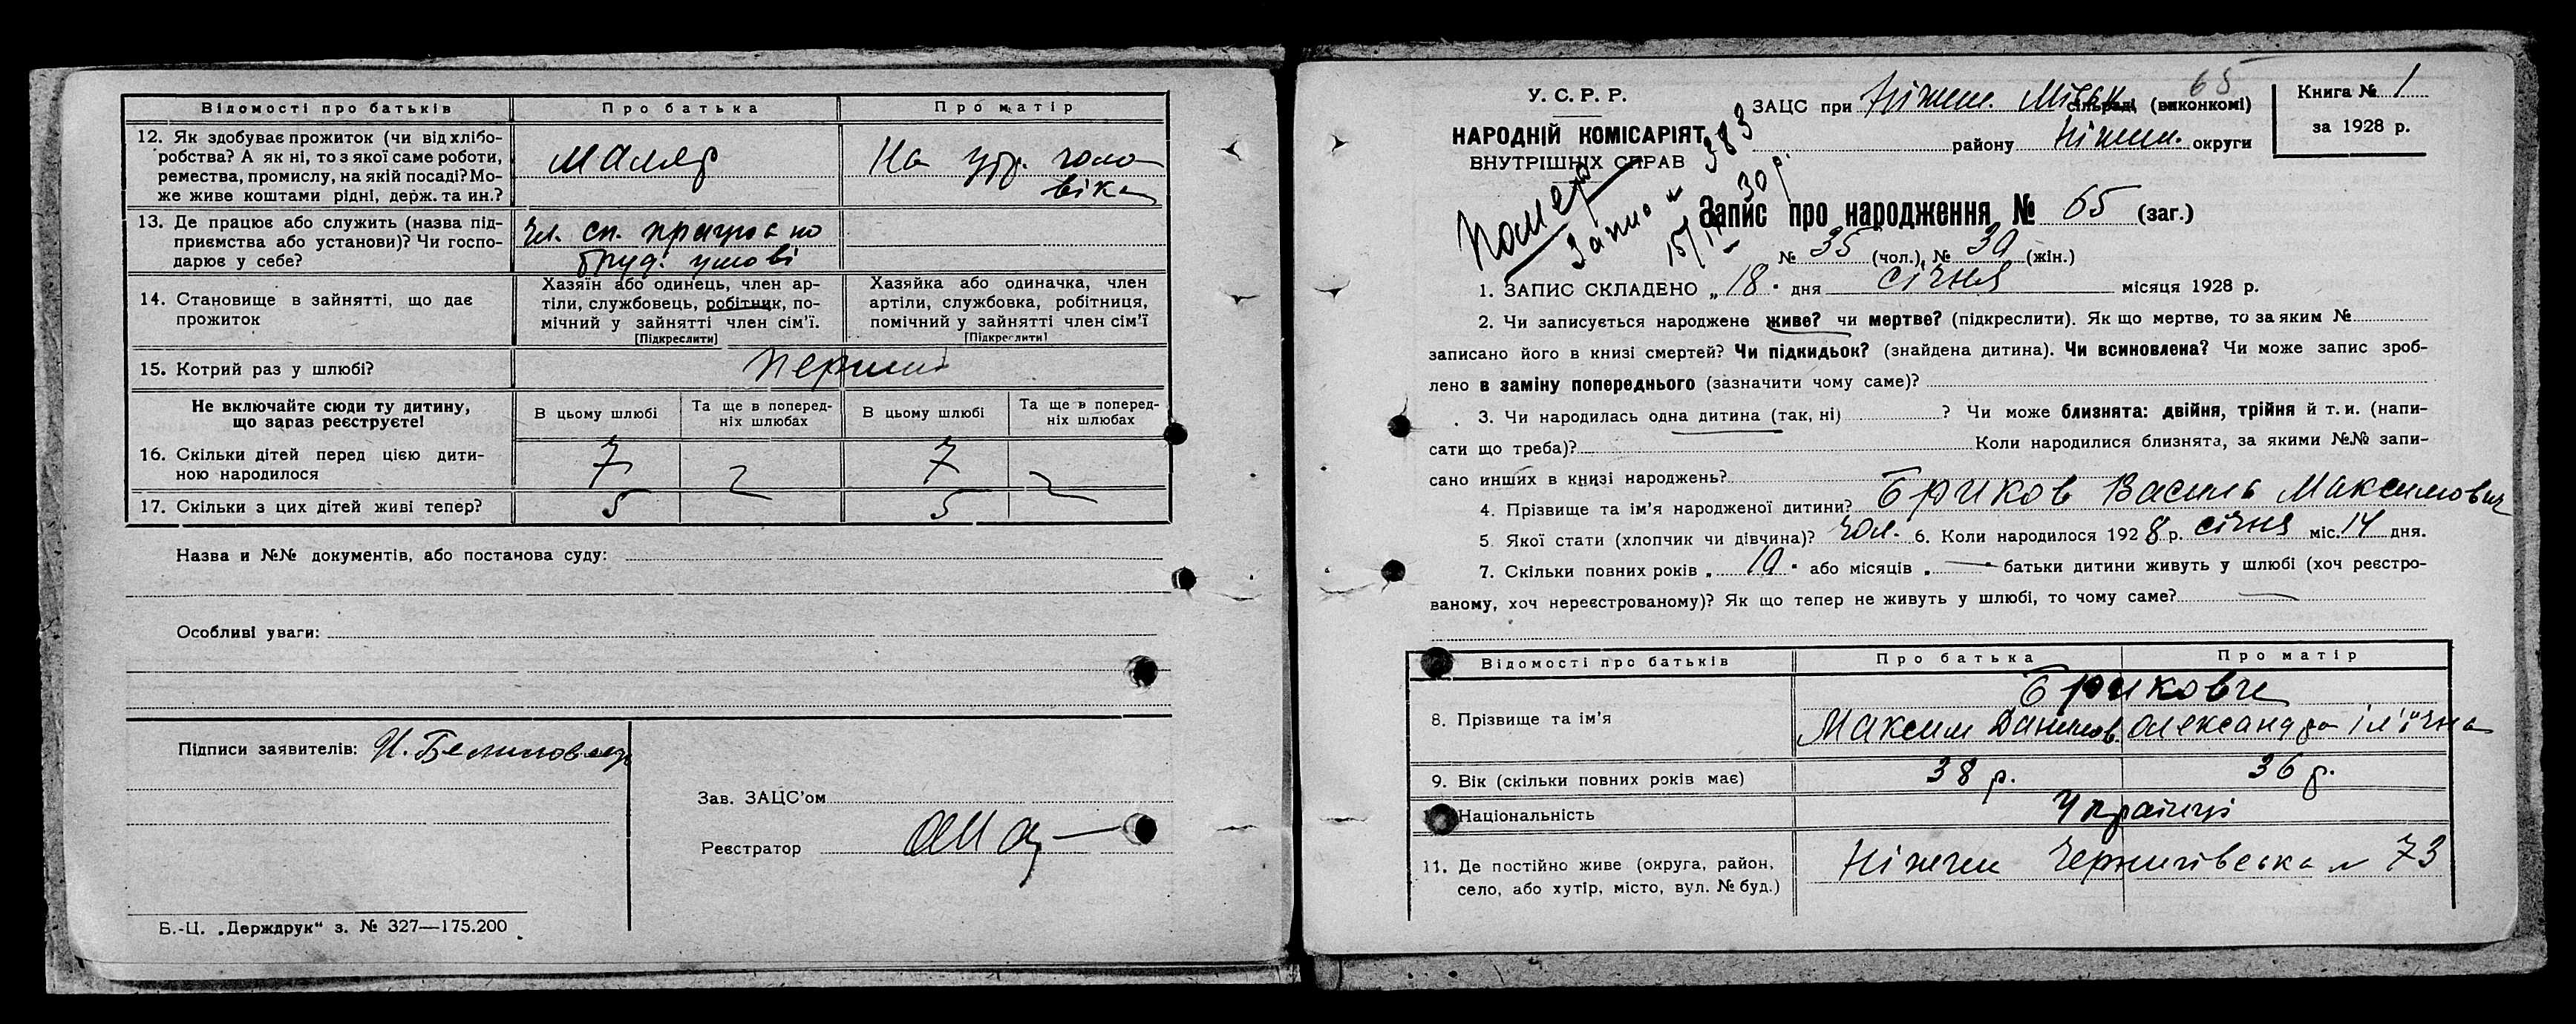 Відомості про батьків Про батька Про матір
12. Як здобуває прожиток (чи від хлібо-
робства? А як ні, то з якої саме роботи,
ремества, промислу, на якій посаді? Мо-
же живе коштами рідні, держ. та ин.?
маляр
На утр. чоло
віка
13. Де працює або служить (назва під-
приємства або установи)? Чи госпо-
дарює у себе?
Чл. сп. працює по
труд. умові
14. Становище в зайнятті, що дає
прожиток
Хазяїн або одинець, член ар-
тіли, службовець, робітник, по-
мічний у зайнятті член сім'ї.
[Підкреслити]
Хазяйка або одиначка, член
артіли, службовка, робітниця,
помічний у зайнятті член сім'ї
[Підкреслити]
15. Котрий раз у шлюбі?
перший
Не включайте сюди ту дитину,
що зараз реєструєте!
В цьому шлюбі
Та ще в поперед-
ніх шлюбах
В цьому шлюбі
Та ще в поперед-
ніх шлюбах
16. Скільки дітей перед цією дити-
ною народилося
7 7
17. Скільки з цих дітей живі тепер?
5 5
Назва и №№ документів, або постанова суду:
Особливі уваги:
Підписи заявителів:
Зав. ЗАЦС'ом
Реєстратор
Б.-Ц. „Держдрук“ з. № 327—175.200
У. С. Р. Р.
НАРОДНІЙ КОМІСАРІЯТ
ВНУТРІШНІХ СПРАВ
Помер
Запис № 383
30 р.
65
ЗАЦС при Ніжин. Міськ сільраді (виконкомі)
району Ніжин. округи
Книга № 1
за 1928 р.
Запис про народження № 65 (заг.)
№ 35 (чол.), № 30 (жін.)
1. ЗАПИС СКЛАДЕНО „ 18 " дня січня місяця 1928 р.
2. Чи записується народжене живе? чи мертве? (підкреслити). Як що мертве, то за яким №
записано його в книзі смертей? Чи підкидьок? (знайдена дитина). Чи всиновлена? Чи може запис зроб-
лено в заміну попереднього (зазначити чому саме)?
3. Чи народилась одна дитина (так, ні) ? Чи може близнята: двійня, трійня й т. и. (напи-
сати що треба)? Коли народилися близнята, за якими №№ запи-
сано инших в книзі народжень?
4. Прізвище та ім'я народженої дитини? Бриков Василь Максимович
5. Якої стати (хлопчик чи дівчина)? Чол. 6. Коли народилося 1928 р. січня міс. 14 дня.
7. Скільки повних років „ 10 " або місяців „ — " батьки дитини живуть у шлюбі (хоч реєстро-
ваному, хоч нереєстрованому)? Як що тепер не живуть у шлюбі, то чому саме? —
Відомості про батьків Про батька Про матір
8. Прізвище та ім'я
Брикови
Максим Данилов. Олександра Іл'їчна
9. Вік (скільки повних років має) 38 р. 36 р.
Національність Українці
11. Де постійно живе (округа, район,
село, або хутір, місто, вул. № буд.)
Ніжин Чернигівська № 73